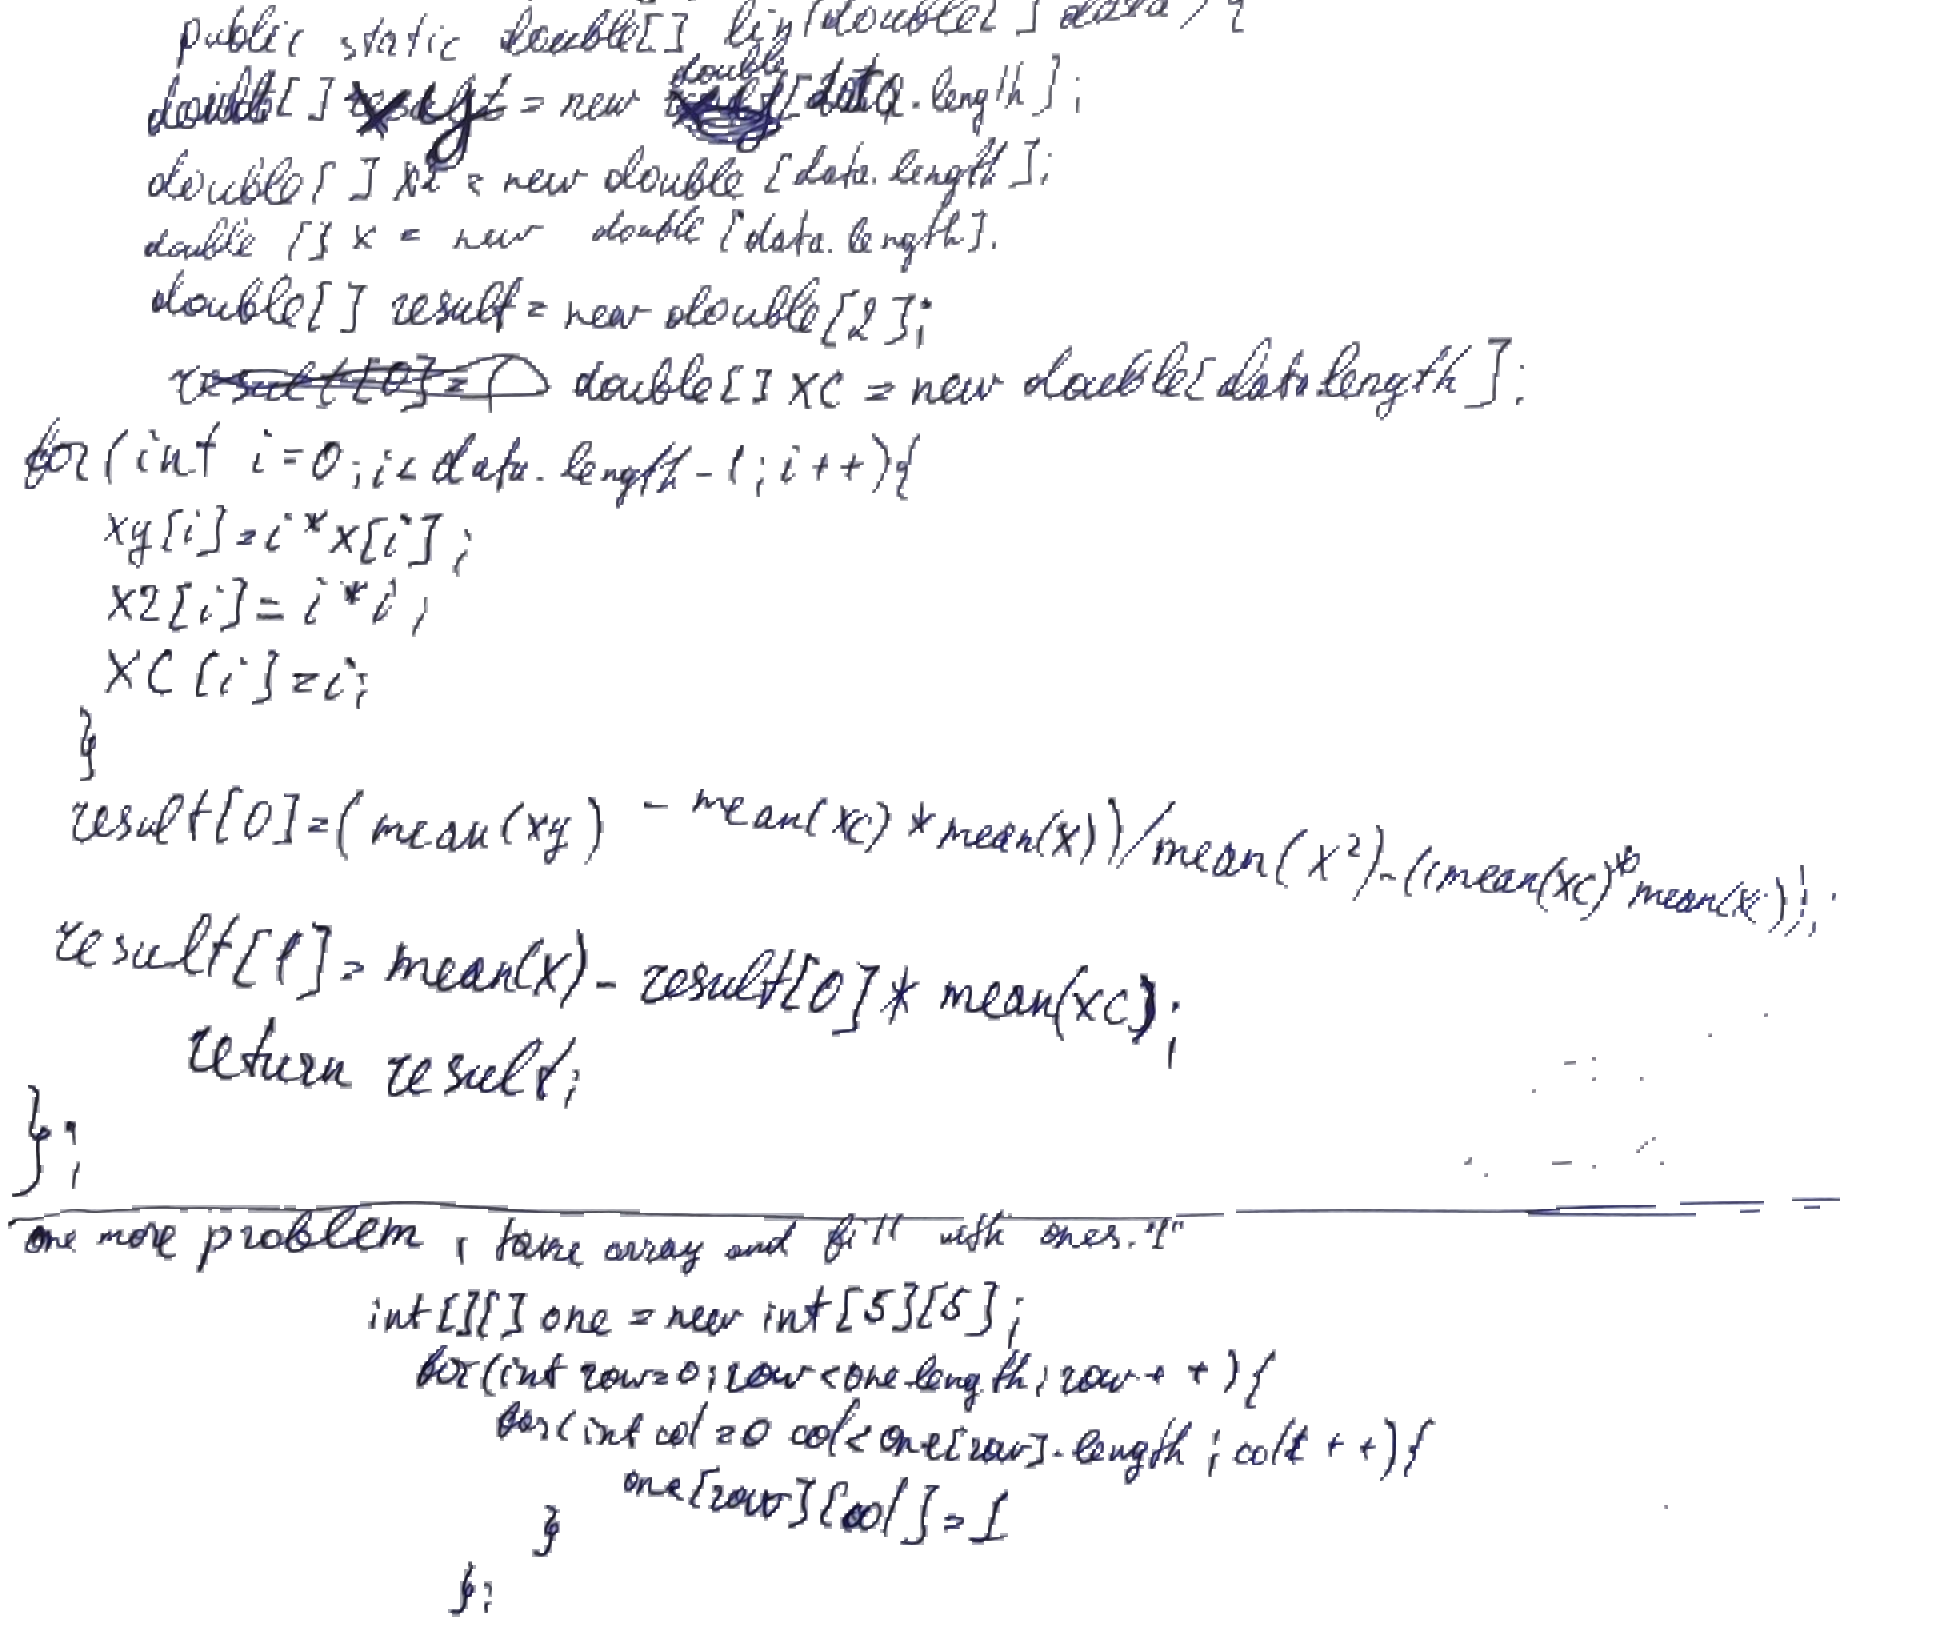 public static double[] lin(double[] data) {
double[] xy = new double[data.length];
double[] x2 = new double [data.length];
double [] x = new double [data.length].
double[] result = new double[2];
double[] XC = new double[data.length];
for(int i=0;i<data.length-1;i++){
xy[i]=i*x[i];
X2[i]=i*i;
XC[i]=i;
}
result[0]=(mean(xy) - mean(xc)*mean(x))/mean(x²)-((mean(xc)*mean(xc));
result[1]=mean(x)-result[0]*mean(xc);
return result;
};
one more problem, take array and fill with ones."1"
int[][] one = new int[5][5];
for(int row=0;row<one.length;row++){
for(int col=0 col<one[row].length;col++){
one[row][col]=1
}
};